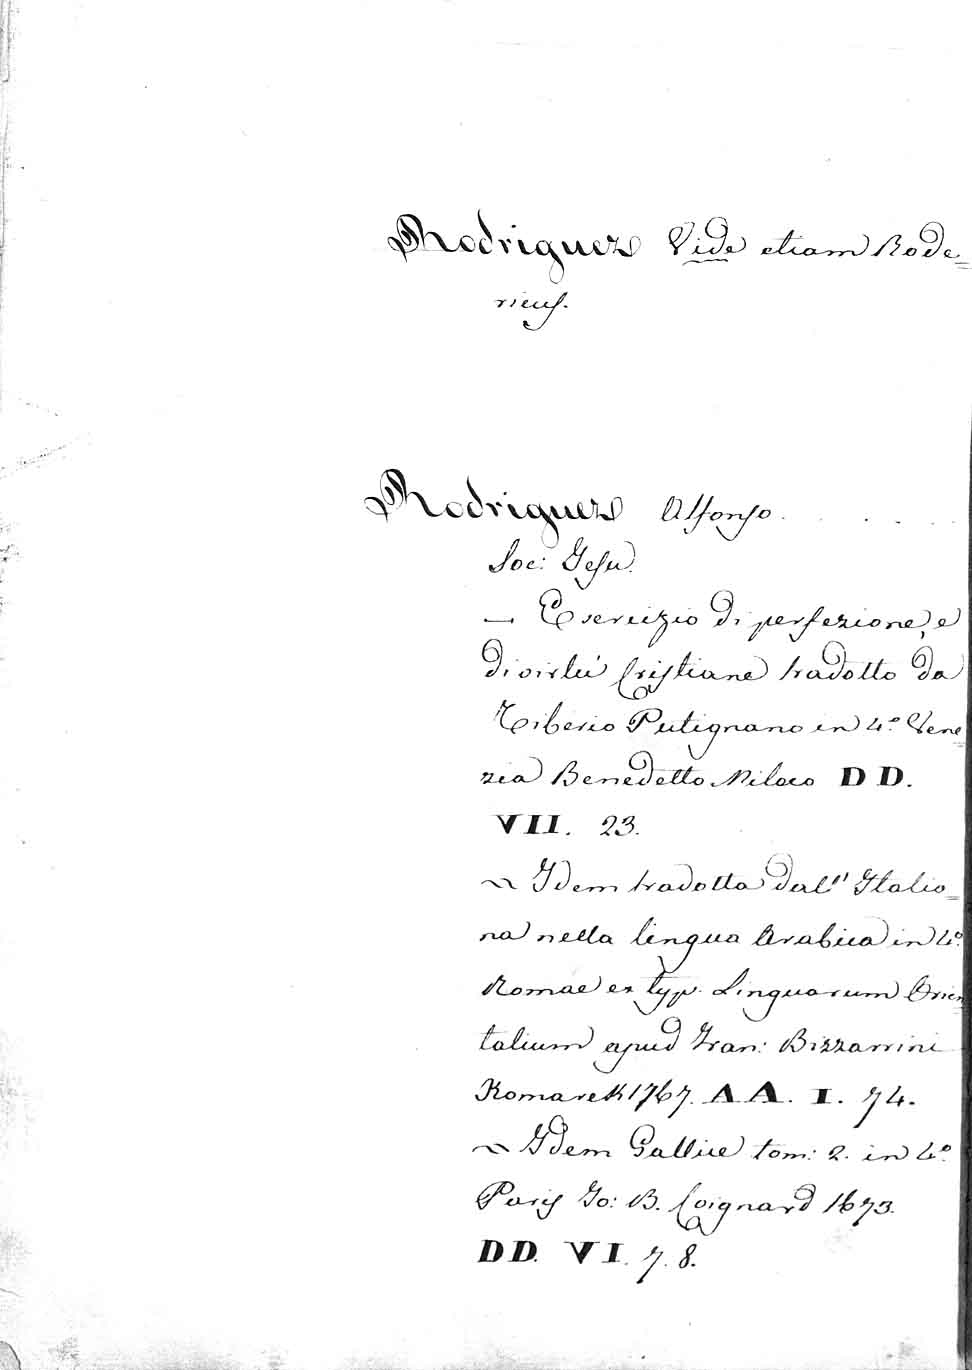 Rodriguez Vide etiam Rode=
ricus.
Rodriguez Alfonso . . . . .
Soc: Gesu.
— Esercizio di perfezione, e
di virtù Cristiane tradotto da
Tiberio Putignano in 4.° Vene=
zia Benedetto Miloco DD.
VII. 23.
~ Idem tradotta dall' Italia=
na nella lingua Arabica in 4.°
Romae ex typ. Linguarum Orien=
talium apud Fran: Bizzarrini
Komarek 1767. AA. I. 74.
~ Idem Gallice tom: 2. in 4.°
Paris Jo: B. Coignard 1673.
DD. VI. 7. 8.